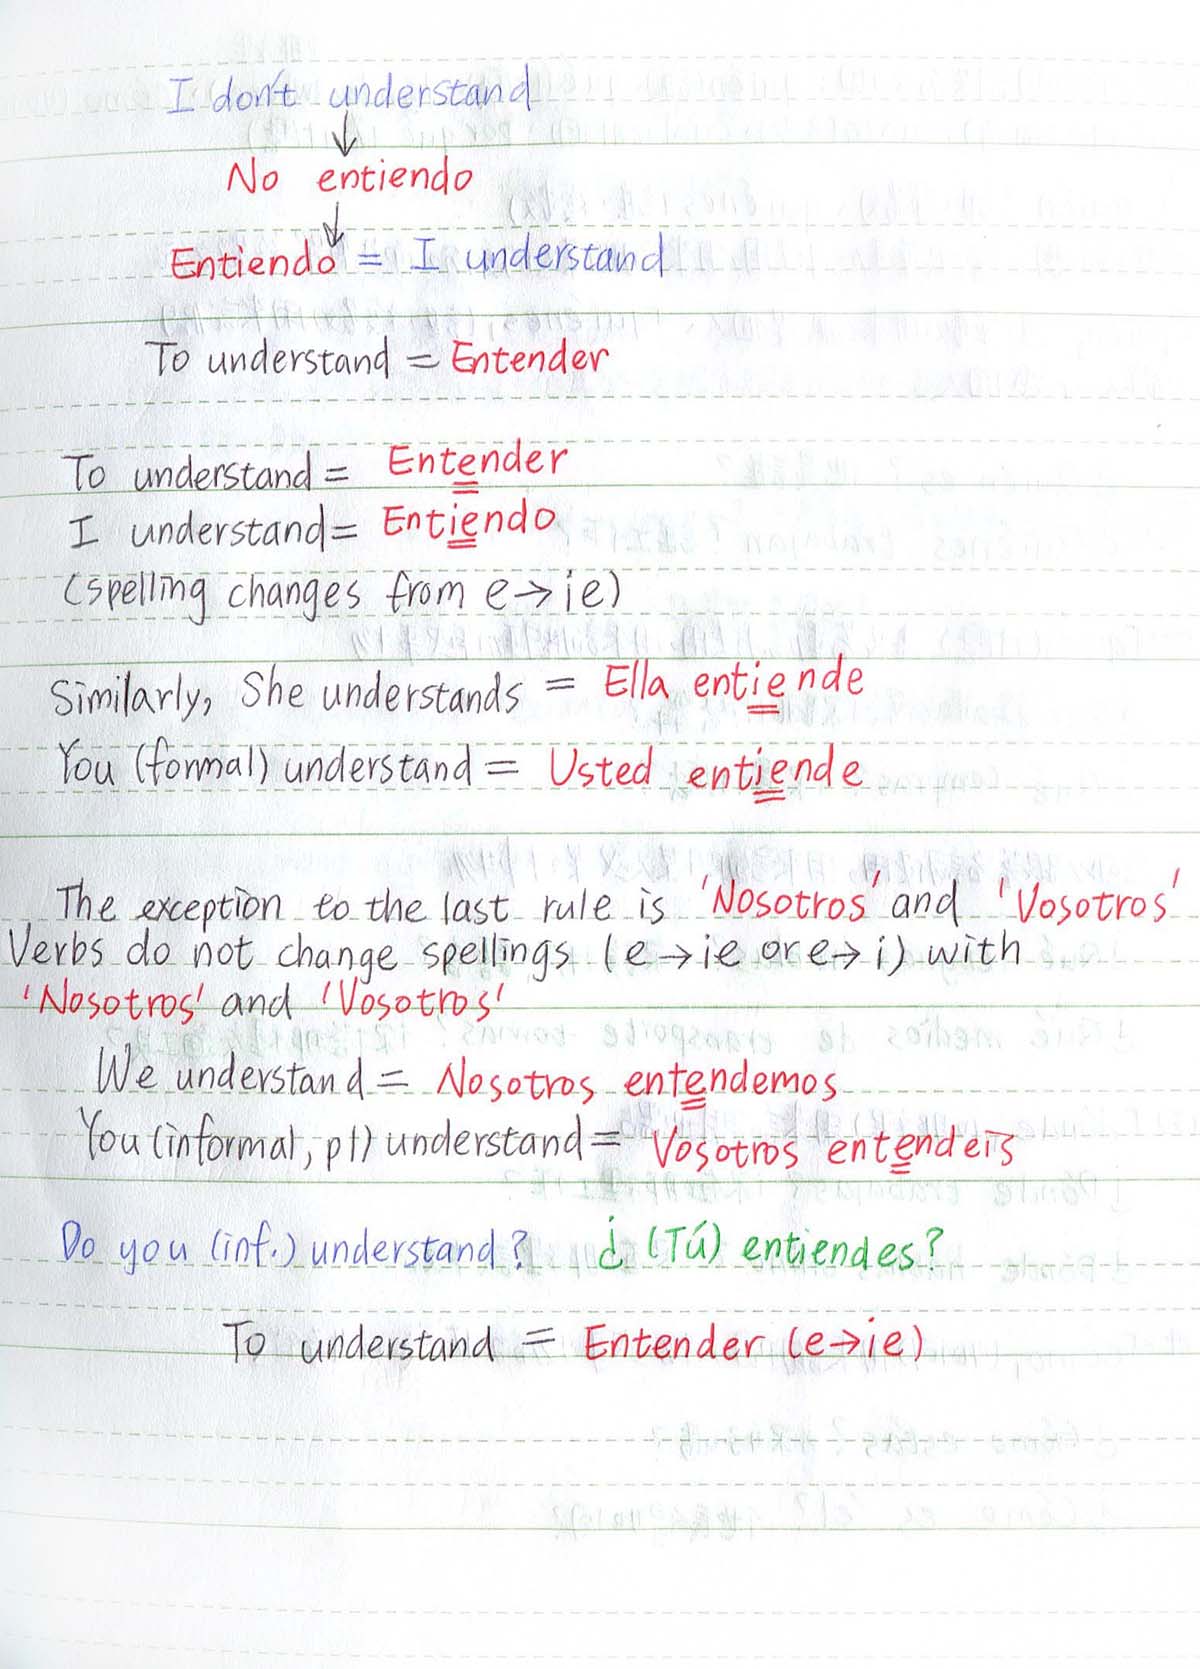 I don't understand
↓
No entiendo
↓
Entiendo = I understand
To understand = Entender
To understand = Entender
I understand = Entiendo
(spelling changes from e→ie)
Similarly, She understands = Ella entiende
You (formal) understand = Usted entiende
The exception to the last rule is 'Nosotros' and 'Vosotros'
Verbs do not change spellings (e→ie or e→i) with
'Nosotros' and 'Vosotros'
We understand = Nosotros entendemos
You (informal, pl) understand = Vosotros entendeis
Do you (inf.) understand? ¿(Tú) entiendes?
To understand = Entender (e→ie)